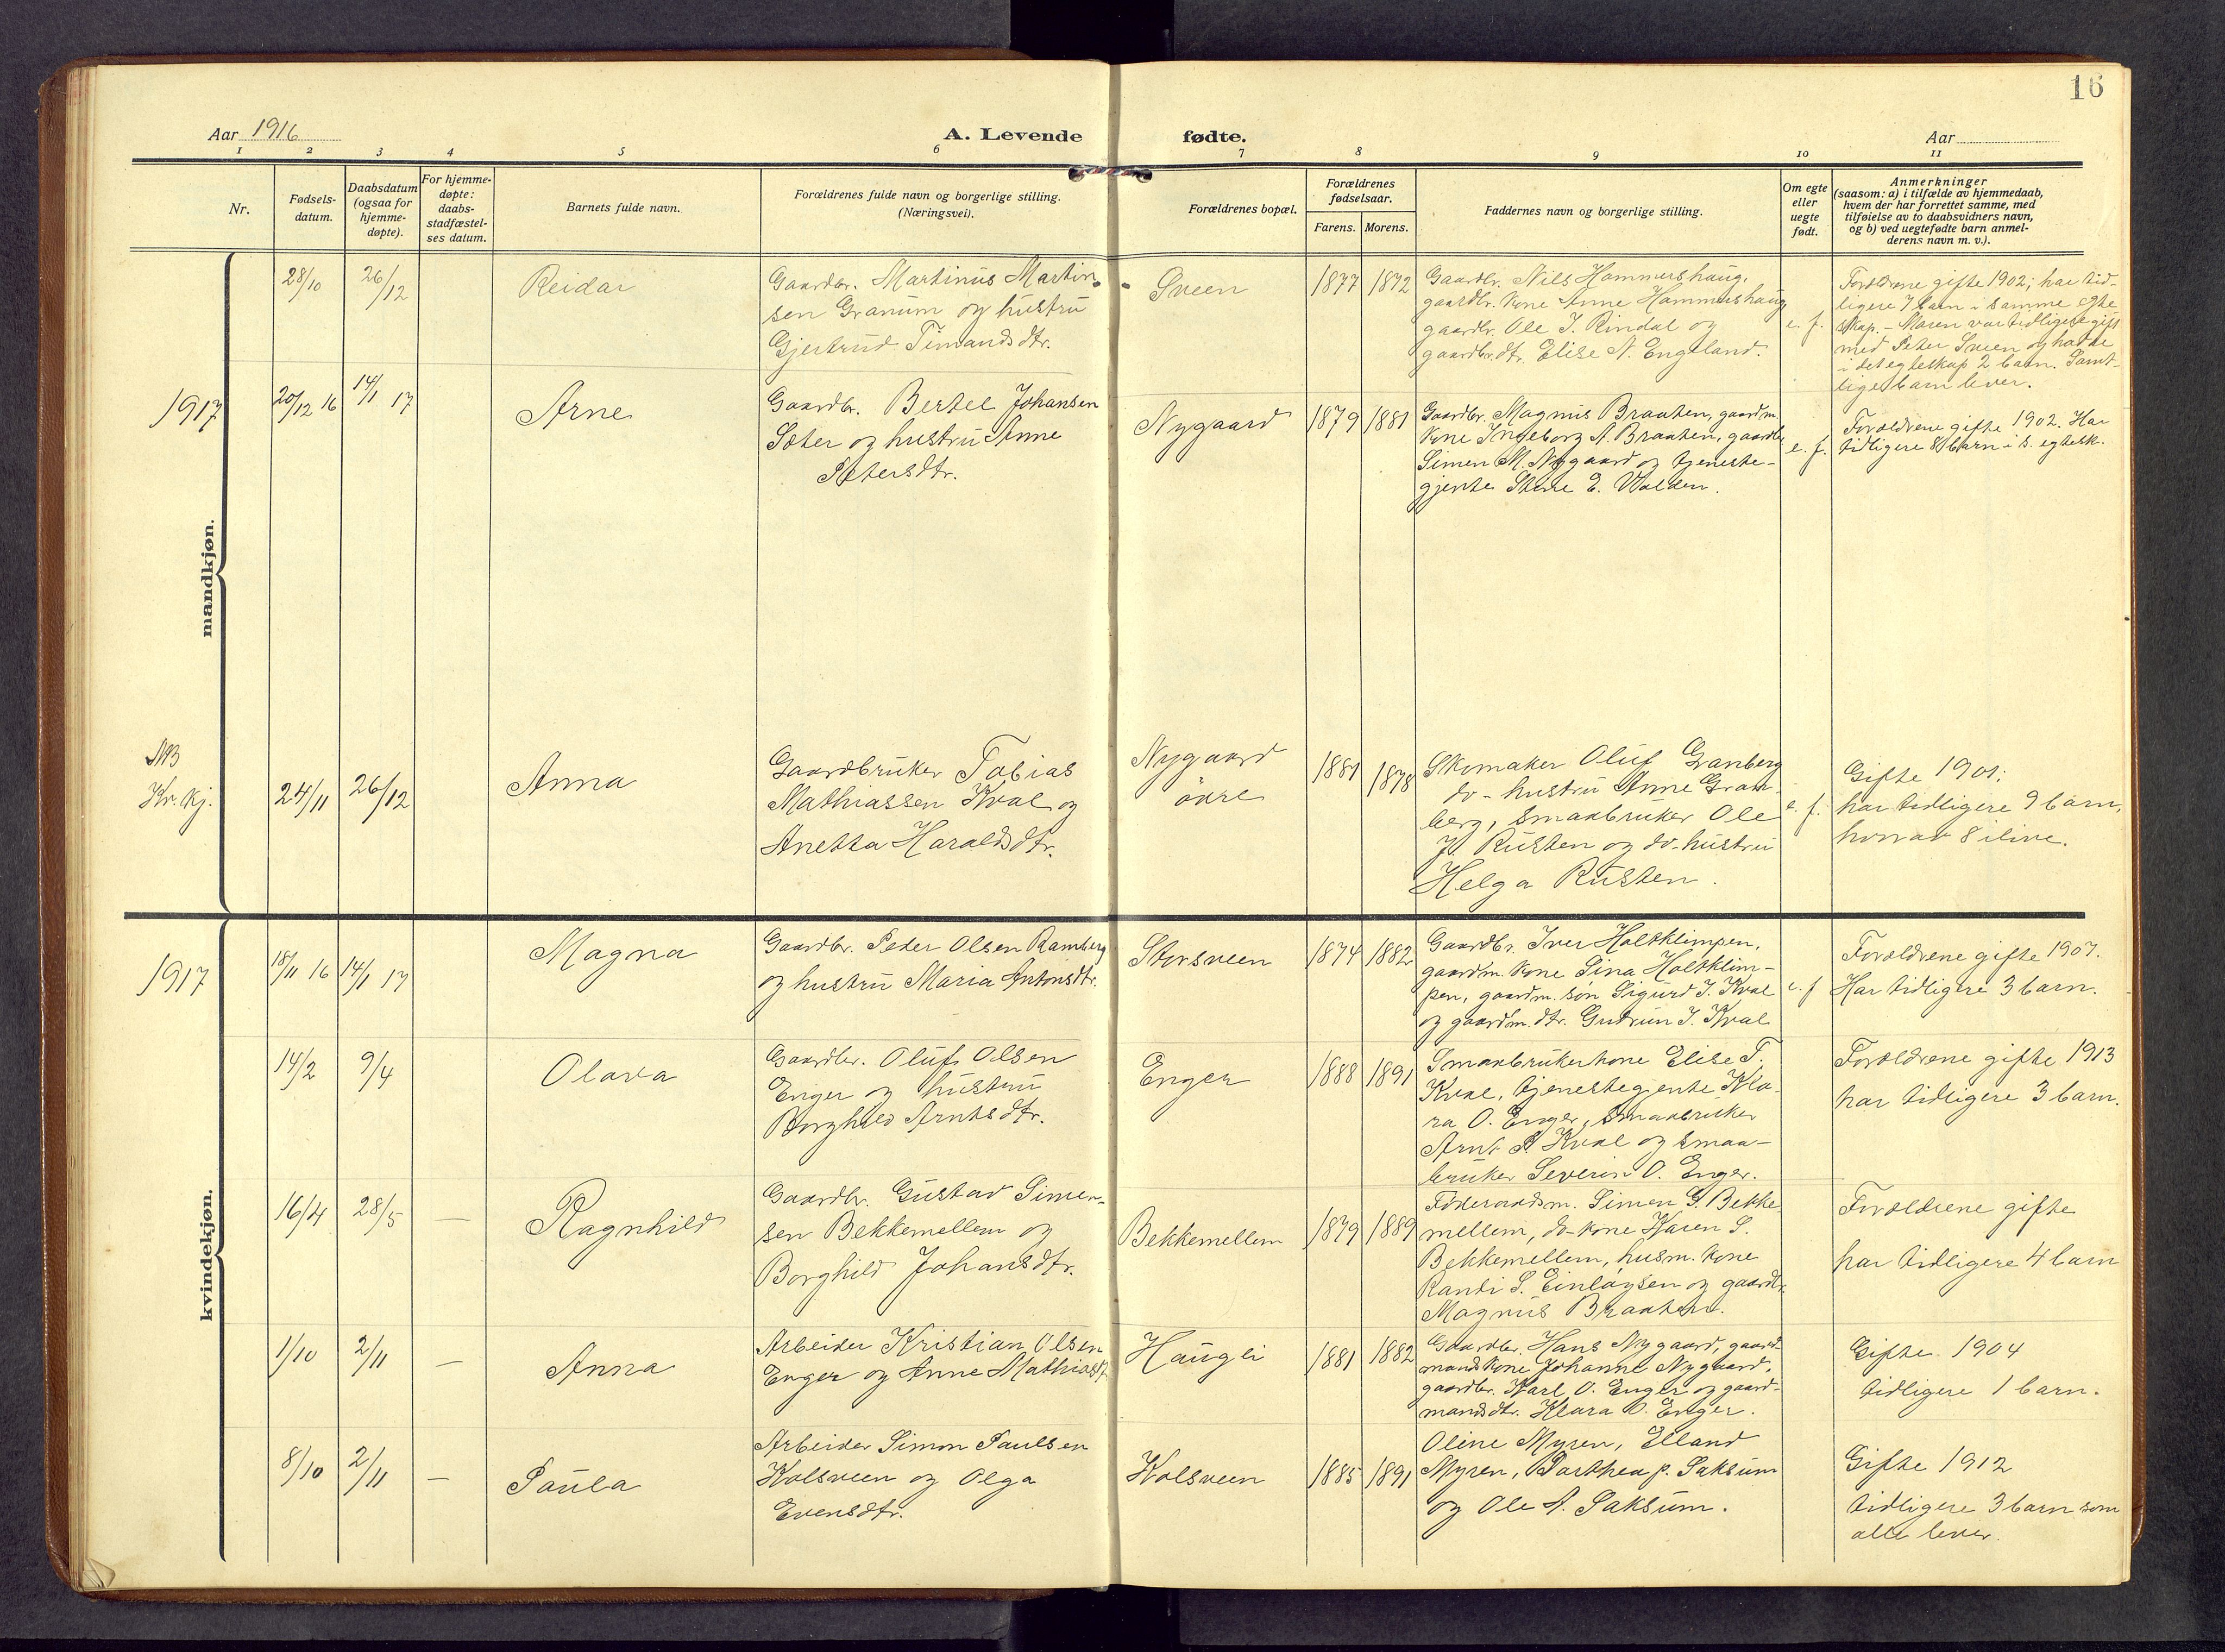 16
Aar 1916
A. Levende fødte.
Aar
1 2 3 4 5 6 7 8 9 10 11
Nr.
Fødsels-
datum.
Daabsdatum
(ogsaa for
hjemme-
døpte).
For hjemme-
døpte:
daabs-
stadfæstel-
ses datum.
Barnets fulde navn.
Forældrenes fulde navn og borgerlige stilling.
(Næringsvei).
Forældrenes bopæl.
Forældrenes
fødselsaar.
Farens. Morens.
Faddernes navn og borgerlige stilling.
Om egte
eller
uegte
født.
Anmerkninger
(saasom: a) i tilfælde av hjemmedaab,
hvem der har forrettet samme, med
tilføielse av to daabsvidners navn,
og b) ved uegtefødte barn anmel-
derens navn m. v.).
mandkjøn.
28/10
26/12
Reidar
Gaardbr. Martinus Martin-
sen Granum og hustru
Gjertrud Timandsdtr.
Sveen
1877
1872
Gaardbr. Nils Hammershaug,
gaardbr. kone Anne Hammershaug
gaardbr. Ole J. Rindal og
gaardbr. dtr. Elise A. Engeland.
e. f.
Forældrene gifte 1902; har tid-
ligere 7 barn i samme egte
skap. - Moren var tidligere gift
med Peter Sveen og hadde
i det egteskap 2 barn. Samt-
lige barn lever.
1917
20/12 16
14/1 17
Arne
Gaardbr. Bertel Johansen
Sæter og hustru Anne
Petersdtr.
Nygaard
1879
1881
Gaardbr. Magnus Braaten, gaardm.
kone Ingeborg A. Braaten, gaardbr.
Simen M. Nygaard og tjeneste-
gjente E. Volden.
e. f.
Forældrene gifte 1902. Har
tidligere 8 barn i s. egtesk.
NB
Kv. kj.
24/11
26/12
Anna
Gaardbruker Tobias
Mathiassen Kval og
Anetta Haraldsdtr.
Nygaard
øvre
1881
1878
Skomaker Oluf Granberg
do - hustru Anne Gran-
berg, smaabruker Ole
J. Rusten og do - hustru
Helga Rusten.
e. f.
Gifte 1901;
har tidligere 9 barn,
hvorav 8 ilive.
kvindekjøn.
1917
18/11 16
14/1 17
Magna
Gaardbr. Peder Olsen Ramberg
og hustru Maria Antonsdtr.
Storsveen
1874
1882
Gaardbr. Iver Holtklimpen,
gaardm. kone Sina Holtklim-
pen, gaardm. søn Sigurd J. Kval
og gaardm. dtr. Gudrun J. Kval
e. f
Forældrene gifte 1907.
Har tidligere 3 barn.
14/2
9/4
Olava
Gaardbr. Oluf Olsen
Enger og hustru
Borghild Arntsdtr.
Enger
1888
1891
Smaabrukerkone Elise T.
Kval, tjenestegjente Kla-
ra O. Enger, smaabruker
Arnt Kval og smaa-
bruker Severin O. Enger.
Forældrene gifte 1913
har tidligere 3 barn.
16/4
28/5
—
Ragnhild
Gaardbr. Gustav Simen-
sen Bekkemellem og
Borghild Johansdtr.
Bekkemellem
1879
1889
Føderaadsm. Simen G. Bekke
mellem, do - kone Karen S.
Bekkemellem, husm. kone
Randi S. Einløysen og gaardbr.
Magnus Braaten.
Forældrene gifte
har tidligere 4 barn
1/10
2/11
—
Anna
Arbeider Kristian Olsen
Enger og Anne Mathiasdt.
Haugli
1881
1882
Gaardbr. Hans Nygaard, gaard-
mandskone Johanne Nygaard,
gaardbr. Karl O. Enger og gaard-
mandsdtr. Klara O. Enger.
Gifte 1904
tidligere 1 barn.
8/10
2/11
—
Paula
Arbeider Simon Paulsen
Kolsveen og Olga
Evensdtr.
Kolsveen
1885
1891
Oline Myren, Elland
Myren, Barthea p. Saksum
og Ole A. Saksum.
Gifte 1912
tidligere 3 barn som
alle lever.